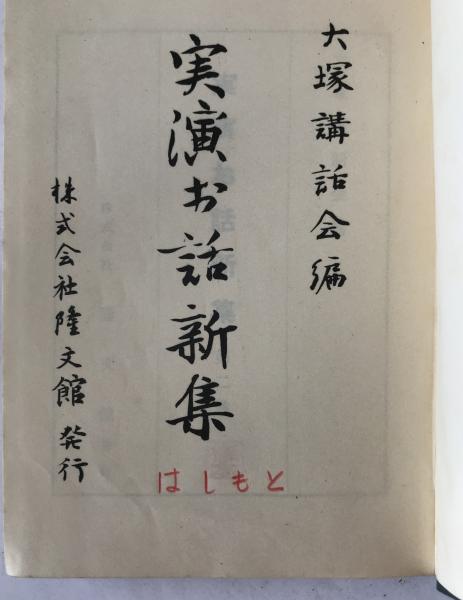 大塚講話会編
実演お話新集
株式会社隆文館発行
はしもと